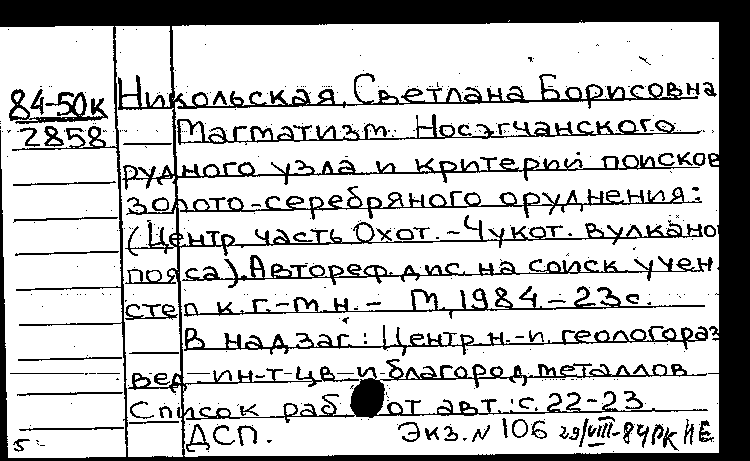 84-50к
2858
Никольская, Светлана Борисовна
Магматизм Носэгчанского
рудного узла и критерии поисков
золото-серебряного оруднения:
(Центр. часть Охот.-Чукот. вулкано
пояса). Автореф. дис. на соиск. учен.
степ к.г.-м.н. - М., 1984. - 23 с.
В надзаг.: Центр н.-и. геологораз
вед. ин-т цв. и благород. металлов
Список работ авт.: с. 22-23.
ДСП. Экз. № 106 29/VIII-84
5